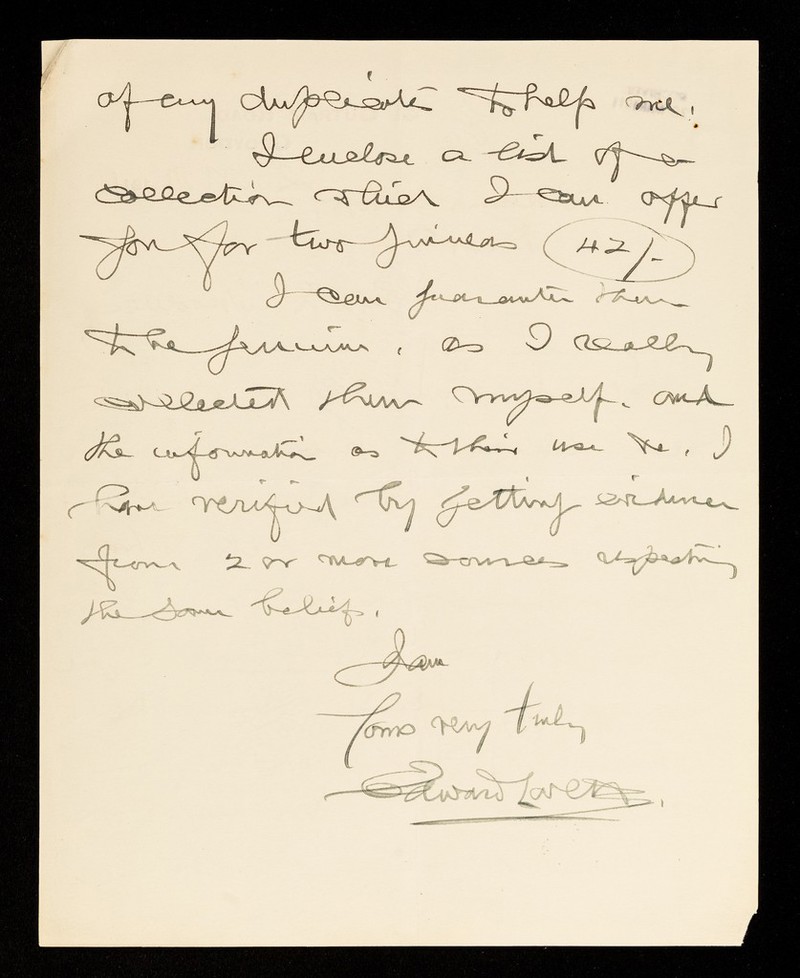 of any duplicates to help me.
I enclose a list of a
collection which I can offer
you for two guineas (42/-)
I can guarantee them
to be genuine, as I really
collected them myself. and
the information as to their use &c, I
have verified by getting evidence
from 2 or more sources respecting
the same belief.
I am
Yours very truly
Edward Lovett.